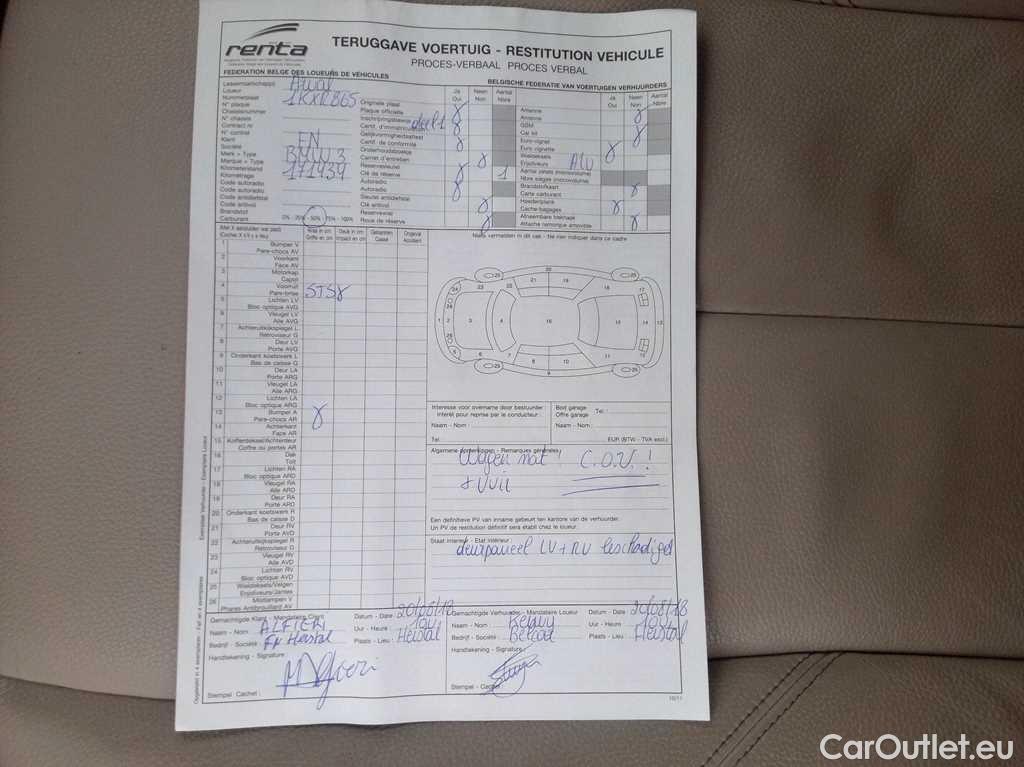 renta
TERUGGAVE VOERTUIG - RESTITUTION VEHICULE
PROCES-VERBAAL PROCES VERBAL
FEDERATION BELGE DES LOUEURS DE VÉHICULES
BELGISCHE FEDERATIE VAN VOERTUIGEN VERHUURDERS
Leasemaatschappij
Loueur
Nummerplaat
N° plaque
Chassisnummer
N° chassis
Contract nr
N° contrat
Klant
Société
Merk + Type
Marque + Type
BMW 3
Kilometerstand
Kilométrage
171939
Code autoradio
Code autoradio
Code antidiefstal
Code antivol
Brandstof
Carburant
0% - 25% - 50% - 75% - 100%
Ja Oui
Neen Non
Aantal Nbre
Originele plaat
Plaque officielle
Inschrijvingsbewijs
Certif. d'immatriculation
deel 1
Gelijkvormigheidsattest
Certif. de conformité
Onderhoudsboekje
Carnet d'entretien
Reservesleutel
Clé de réserve
1
Autoradio
Autoradio
Sleutel antidiefstal
Clé antivol
Reservewiel
Roue de réserve
Ja Oui
Neen Non
Aantal Nbre
Antenne
Antenne
GSM
Car kit
Euro-vignet
Euro vignette
Wieldeksels
Enjoliveurs
ALU
Aantal zetels (monovolume)
Nbre sièges (monovolume)
Brandstofkaart
Carte carburant
Hoedenplank
Cache-bagages
Afneembare trekhaak
Attache remorque amovible
Met X aanduiden wat past
Cochez X s'il y a lieu
Kras in cm
Griffe en cm
Deuk in cm
Impact en cm
Gebarsten
Cassé
Ongeval
Accident
1 Bumper V
Pare-chocs AV
2 Voorkant
Face AV
3 Motorkap
Capot
4 Voorruit
Pare-brise
5 Lichten LV
Bloc optique AVG
6 Vleugel LV
Aile AVG
7 Achteruitkijkspiegel L
Rétroviseur G
8 Deur LV
Porte AVG
9 Onderkant koetswerk L
Bas de caisse G
10 Deur LA
Porte ARG
11 Vleugel LA
Aile ARG
12 Lichten LA
Bloc optique ARG
13 Bumper A
Pare-chocs AR
14 Achterkant
Face AR
15 Kofferdeksel/Achterdeur
Coffre ou portes AR
16 Dak
Toit
17 Lichten RA
Bloc optique ARD
18 Vleugel RA
Aile ARD
19 Deur RA
Porte ARD
20 Onderkant koetswerk R
Bas de caisse D
21 Deur RV
Porte AVD
22 Achteruitkijkspiegel R
Rétroviseur D
23 Vleugel RV
Aile AVD
24 Lichten RV
Bloc optique AVD
25 Wieldeksels/Velgen
Enjoliveurs/Jantes
26 Mistlampen V
Phares Antibrouillard AV
Niets vermelden in dit vak - Ne rien indiquer dans ce cadre
Interesse voor overname door bestuurder :
Intérêt pour reprise par le conducteur :
Naam - Nom :
Tel :
Bod garage
Offre garage
Tel. :
Naam - Nom :
EUR (BTW - TVA excl.)
Algemene opmerkingen - Remarques générales :
Wagen nat ! C.O.V. !
+ Vuil
Een definitieve PV van inname gebeurt ten kantore van de verhuurder.
Un PV de restitution définitif sera établi chez le loueur.
Staat interieur - Etat intérieur :
deurpaneel LV + RV beschadigd
Gemachtigde Klant - Mandataire Client
Naam - Nom :
Bedrijf - Société :
Handtekening - Signature :
Stempel Cachet :
Datum - Date : 20/08/18
Uur - Heure : 10u
Plaats - Lieu : Herstal
Gemachtigde Verhuurder - Mandataire Loueur
Naam - Nom :
Bedrijf - Société :
Handtekening - Signature :
Stempel - Cachet :
Datum - Date : 20/08/18
Uur - Heure : 10u
Plaats - Lieu : Herstal
10/11
CarOutlet.eu